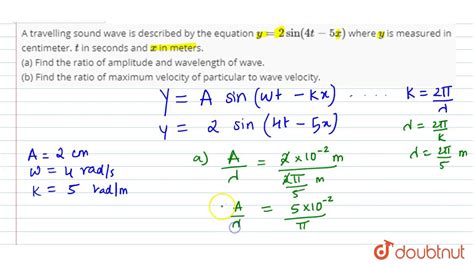 A travelling sound wave is described by the equation y = 2 sin(4t − 5x) where y is measured in
centimeter. t in seconds and x in meters.
(a) Find the ratio of amplitude and wavelength of wave.
(b) Find the ratio of maximum velocity of particular to wave velocity.
Y = A sin (wt − kx) . . . . . K = 2π/λ
y = 2 sin (4t − 5x) λ = 2π/K
A = 2 cm
W = 4 rad/s
K = 5 rad/m
a) A/λ = 2×10⁻² m / (2π/5) m
λ = 2π/5 m
A/λ = 5×10⁻²/π
doubtnut